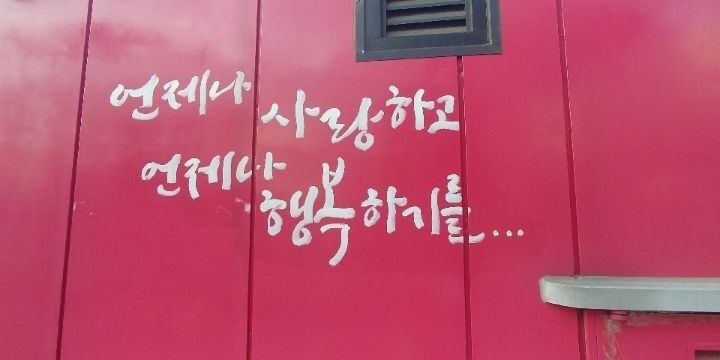 언제나 사랑하고
언제나 행복하기를...